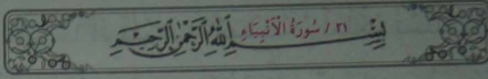 ٢١ / سُورَةُ الْأَنْبِيَاءِ
بِسْمِ اللَّهِ الرَّحْمَٰنِ الرَّحِيمِ